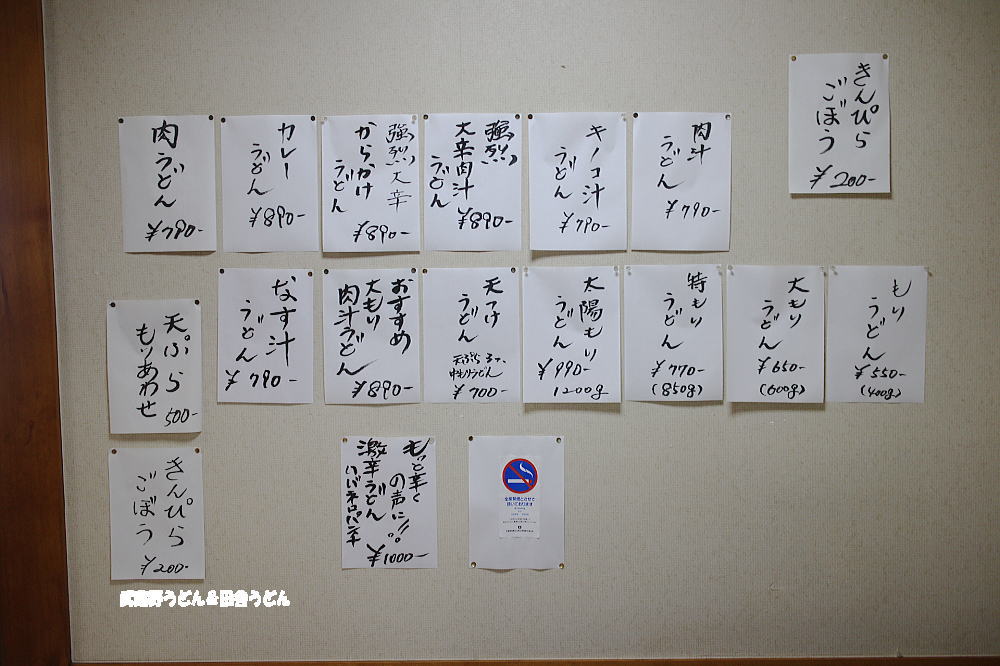 きんぴら
ごぼう
¥200-
肉汁
うどん
¥790-
キノコ汁
うどん
¥790-
強烈
大辛肉汁
うどん
¥890-
強烈大辛
からかけ
うどん
¥890-
カレー
うどん
¥890-
肉うどん
¥790-
もり
うどん
¥550-
(400g)
大もり
うどん
¥650-
(600g)
特もり
うどん
¥770-
(850g)
太陽もり
うどん
¥990-
1200g
天つけ
うどん
¥700-
おすすめ
大もり
肉汁うどん
¥890-
なす汁
うどん
¥790-
天ぷら
もりあわせ
500-
もっと辛く
の声に!!
激辛うどん
ハバネロパンチ
¥1000-
きんぴら
ごぼう
¥200-
武蔵野うどん&田舎うどん